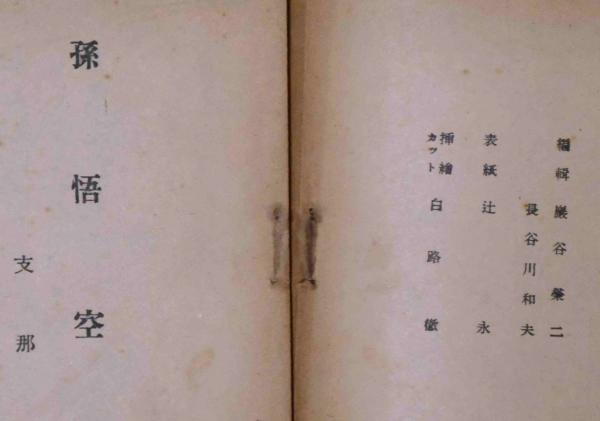 編輯 巖谷榮二
長谷川和夫
表紙 辻永
挿繪
カット 白路徹
孫悟空
支那